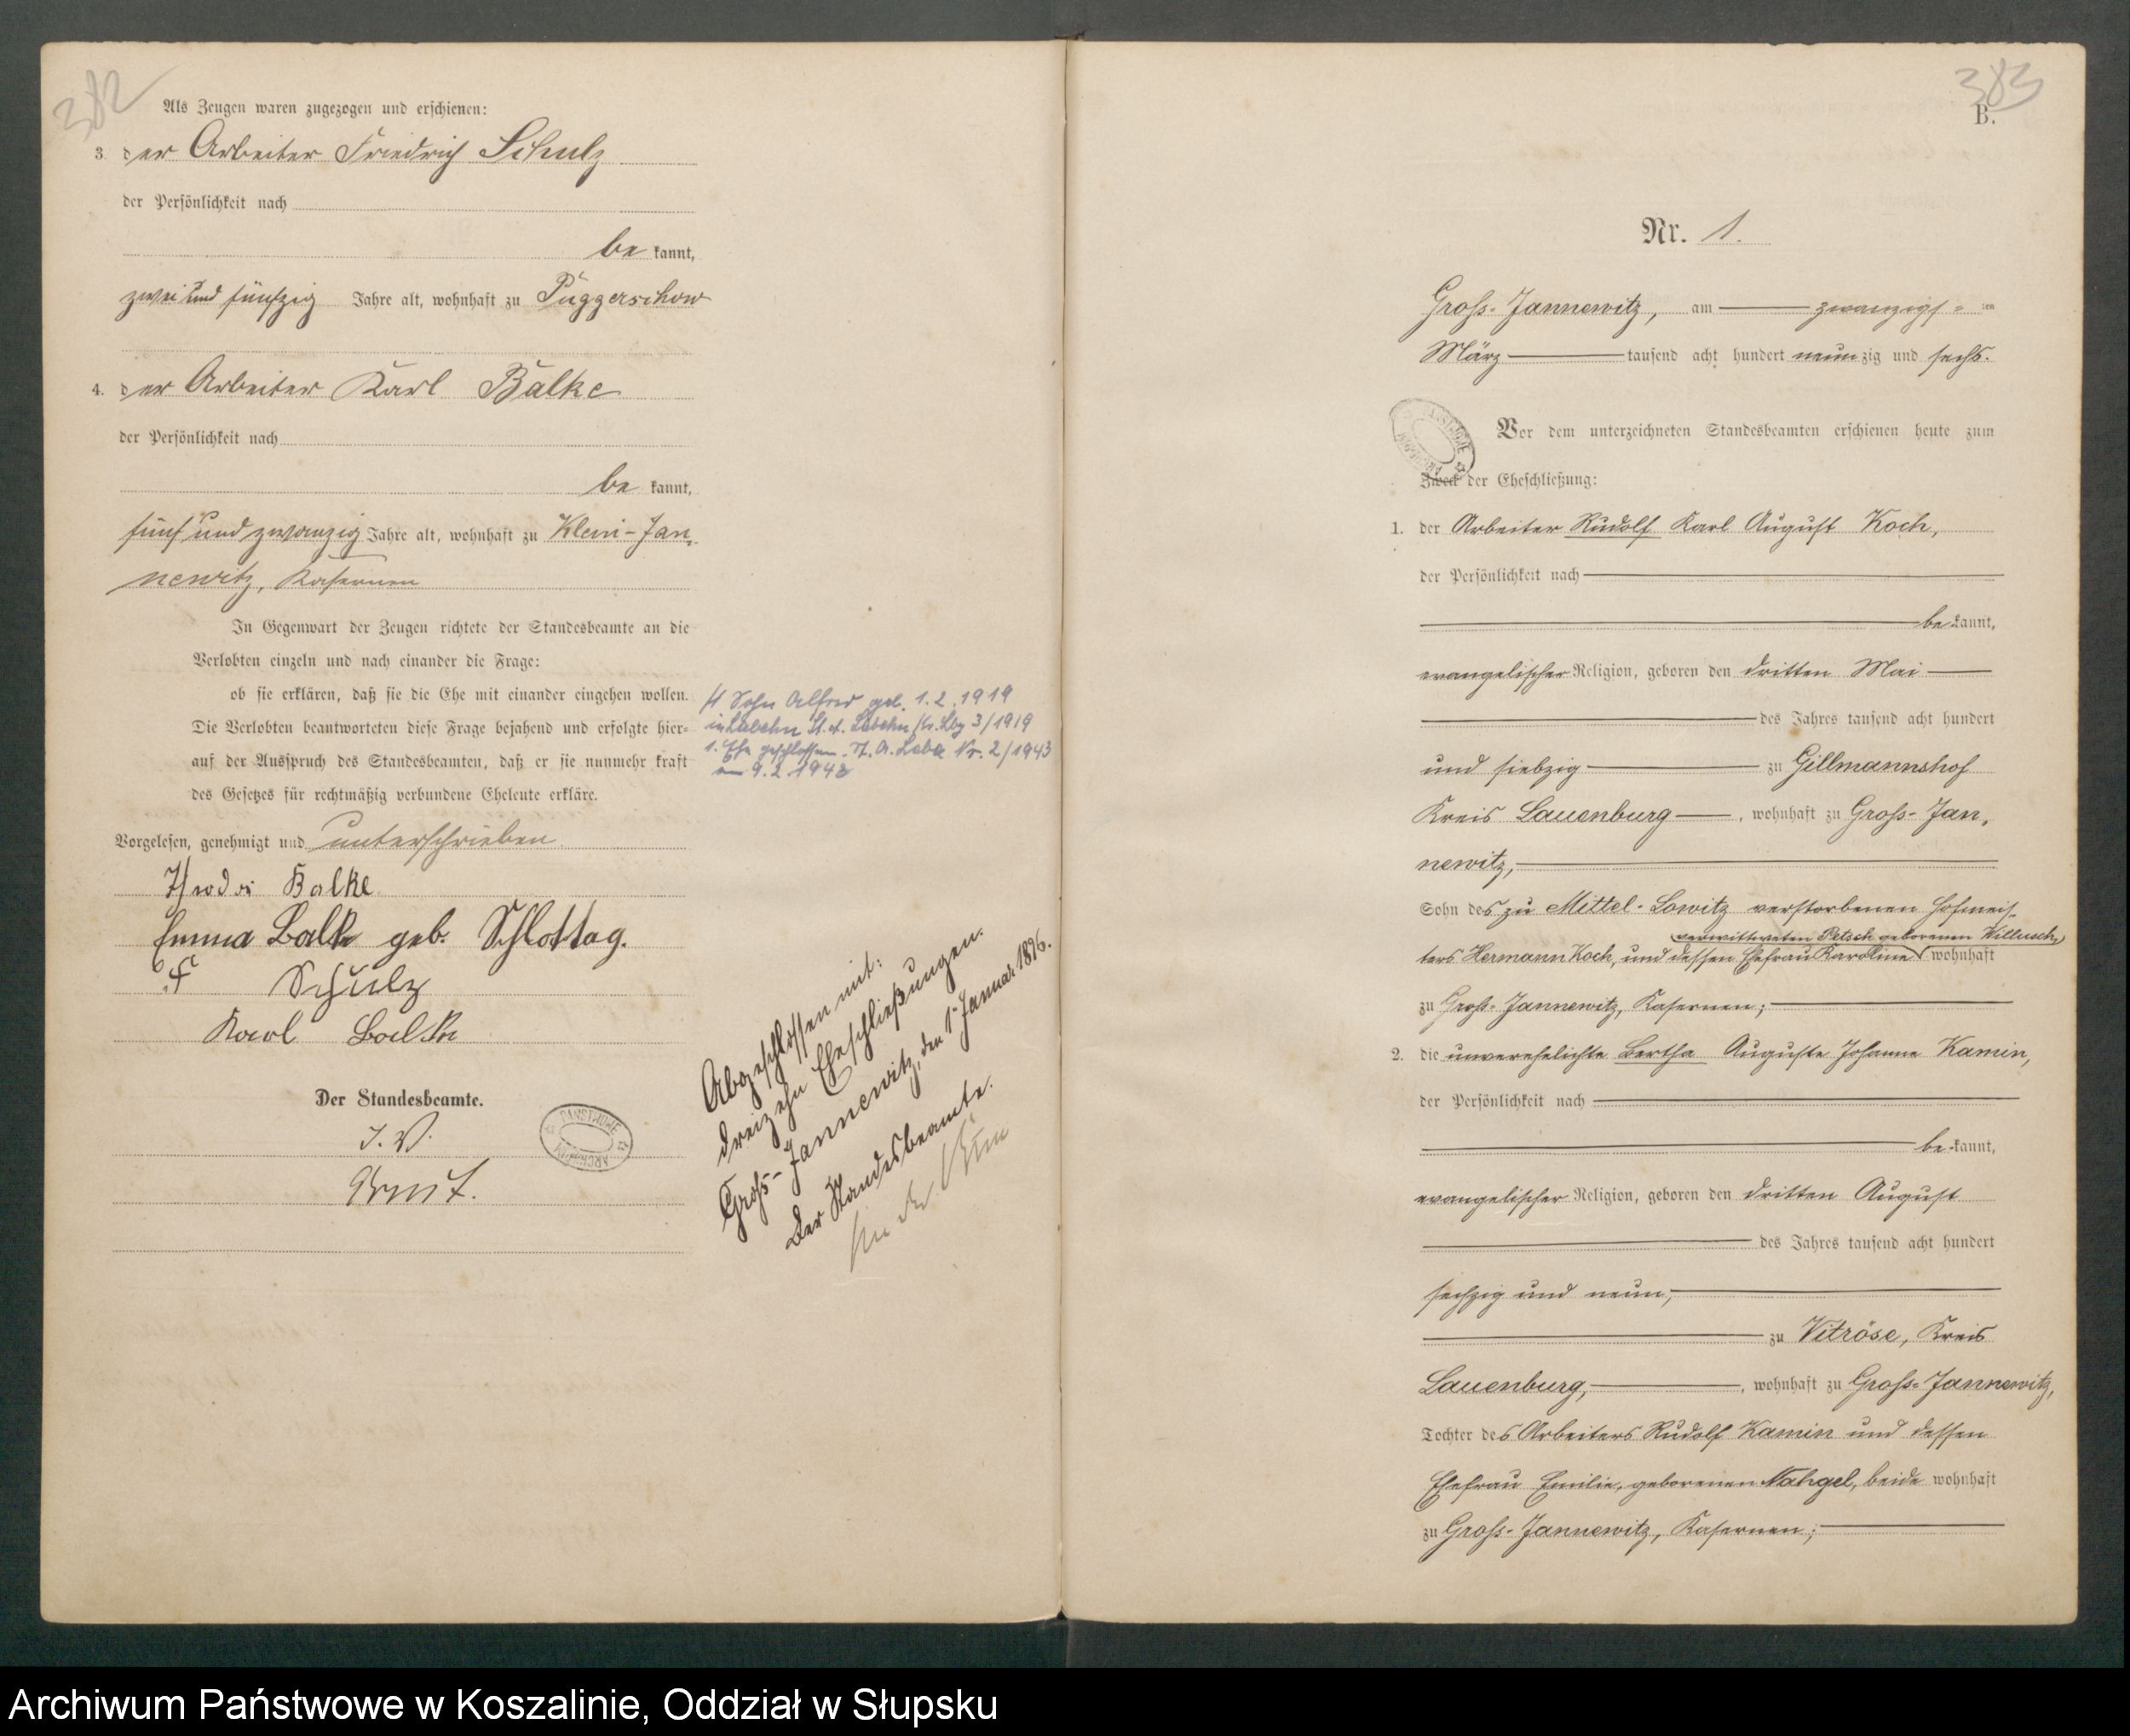 382
Als Zeugen waren zugezogen und erschienen:
3. der Arbeiter Friedrich Schulz
der Persönlichkeit nach
be kannt,
zwei und fünfzig Jahre alt, wohnhaft zu Puggerschow
4. der Arbeiter Karl Balke
der Persönlichkeit nach
be kannt,
fünf und zwanzig Jahre alt, wohnhaft zu Klein-Jan-
newitz, Kasernen
In Gegenwart der Zeugen richtete der Standesbeamte an die
Verlobten einzeln und nach einander die Frage:
ob sie erklären, daß sie die Ehe mit einander eingehen wollen.
Die Verlobten beantworteten diese Frage bejahend und erfolgte hier-
auf der Ausspruch des Standesbeamten, daß er sie nunmehr kraft
des Gesetzes für rechtmäßig verbundene Eheleute erkläre.
Sohn Alfred geb. 1.2.1919
in Labehn St. A. Labehn Kr. Lbg 3/1919
1. Ehe geschlossen. St. A. Leba Nr. 2/1943
am 9.2.1942
Vorgelesen, genehmigt und unterschrieben
Theodor Balke
Emma Balke geb. Schlottag.
F Schulz
Karl Balke
Der Standesbeamte.
I. V.
Abgeschlossen mit:
dreizehn Eheschließungen.
Gross-Jannewitz, den 1. Januar 1896.
Der Standesbeamte.
PAŃSTWOWE ARCHIWUM
383
B.
Nr. 1.
Gross-Jannewitz, am zwanzigs-ten
März tausend acht hundert neunzig und sechs.
Vor dem unterzeichneten Standesbeamten erschienen heute zum
Zweck der Eheschließung:
1. der Arbeiter Rudolf Karl August Koch,
der Persönlichkeit nach
be kannt,
evangelischer Religion, geboren den dritten Mai
des Jahres tausend acht hundert
und siebzig zu Gillmannshof
Kreis Lauenburg, wohnhaft zu Gross-Jan-
newitz,
Sohn des zu Mittel-Lowitz verstorbenen Hofmeis-
verwittweten Petsch geborenen Willusch,
ters Hermann Koch, und dessen Ehefrau Karoline wohnhaft
zu Gross-Jannewitz, Kasernen;
2. die unverehelichte Bertha Auguste Johanne Kamin,
der Persönlichkeit nach
be kannt,
evangelischer Religion, geboren den dritten August
des Jahres tausend acht hundert
sechzig und neun,
zu Vitröse, Kreis
Lauenburg, wohnhaft zu Gross-Jannewitz,
Tochter des Arbeiters Rudolf Kamin und dessen
Ehefrau Emilie, geborenen Nahgel, beide wohnhaft
zu Gross-Jannewitz, Kasernen;
Archiwum Państwowe w Koszalinie, Oddział w Słupsku